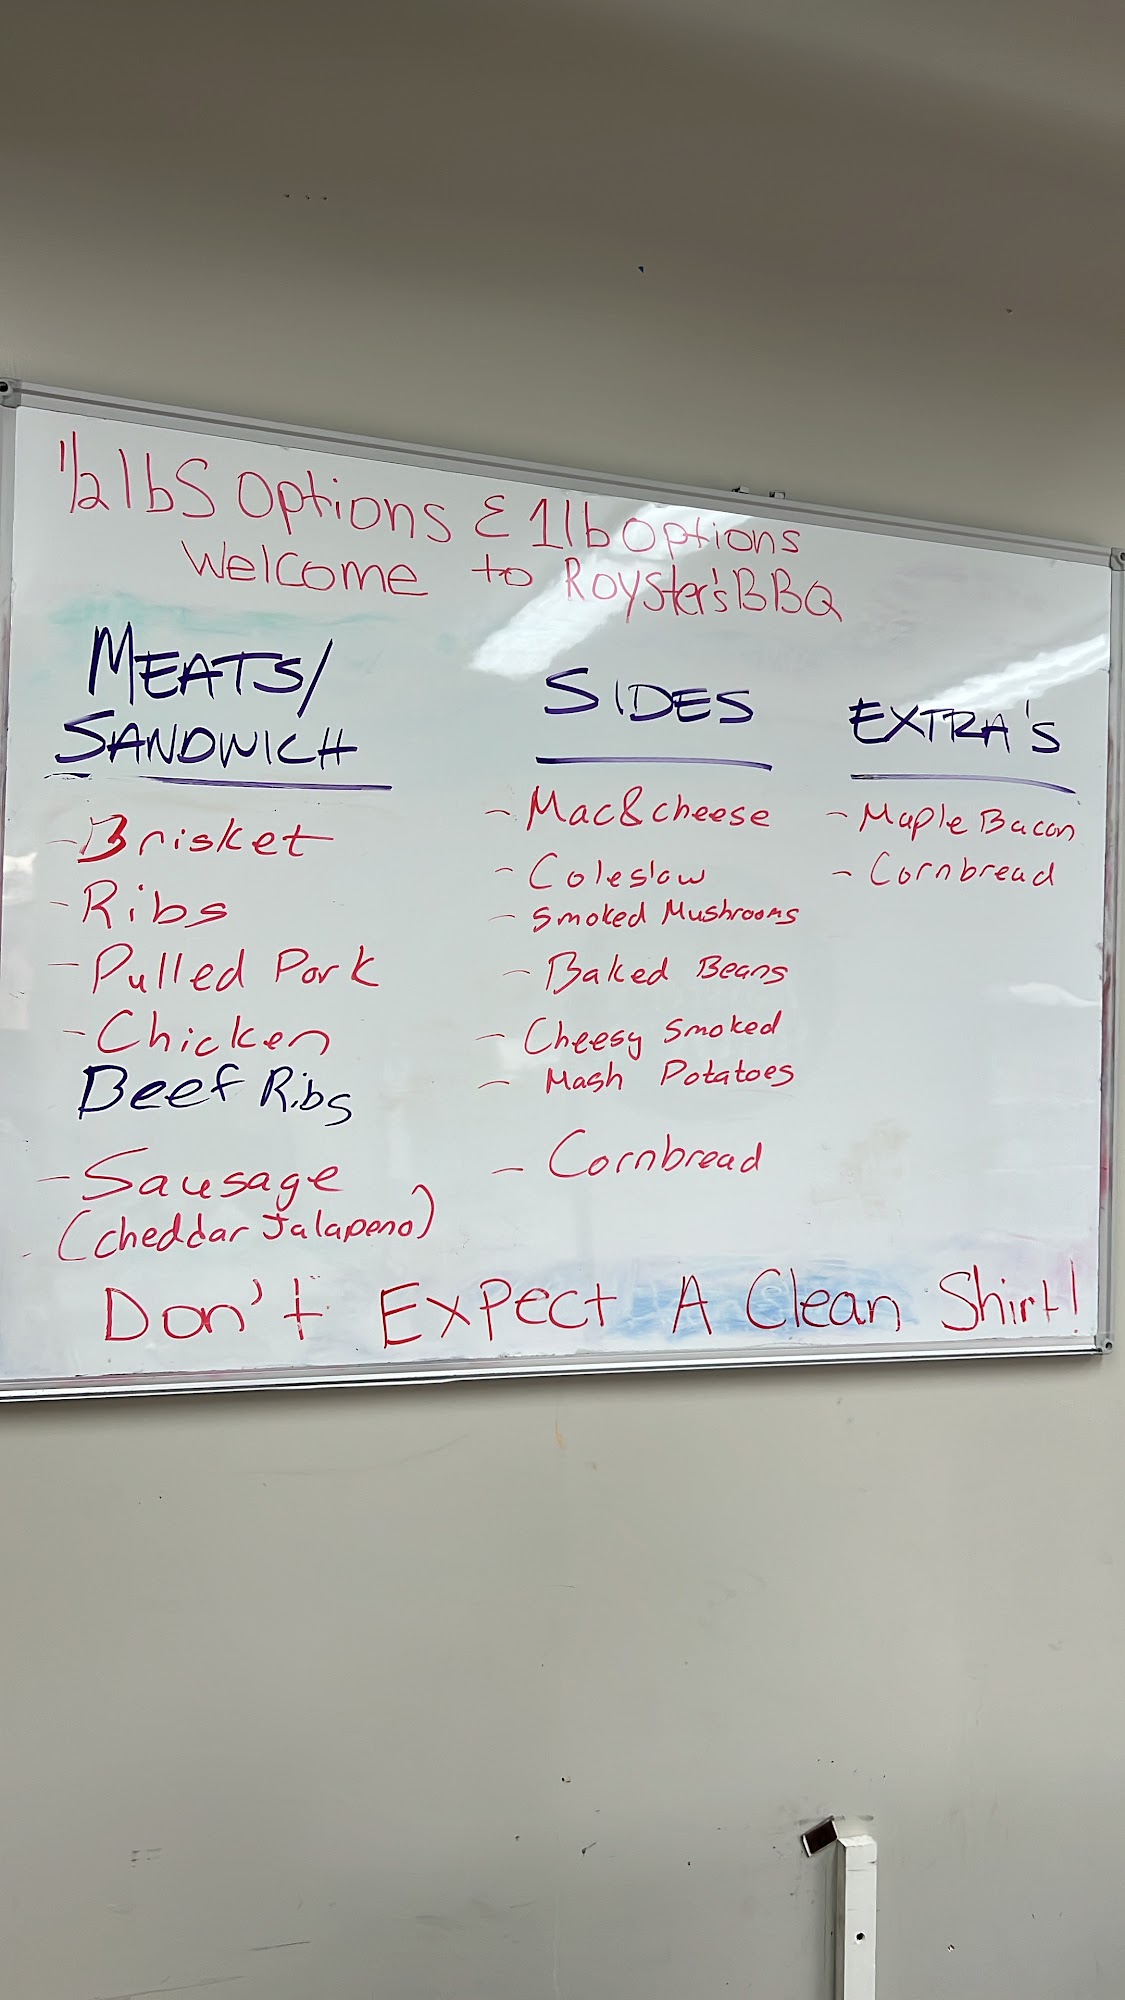 1/2 lbs Options & 1lb options
Welcome to Royster's BBQ
MEATS/
SANDWICH
- Brisket
- Ribs
- Pulled Pork
- Chicken
Beef Ribs
- Sausage
- (cheddar Jalapeno)
SIDES
- Mac&cheese
- Coleslaw
- Smoked Mushrooms
- Baked Beans
- Cheesy Smoked
- Mash Potatoes
- Cornbread
EXTRA'S
- Maple Bacon
- Cornbread
Don't Expect A Clean Shirt!